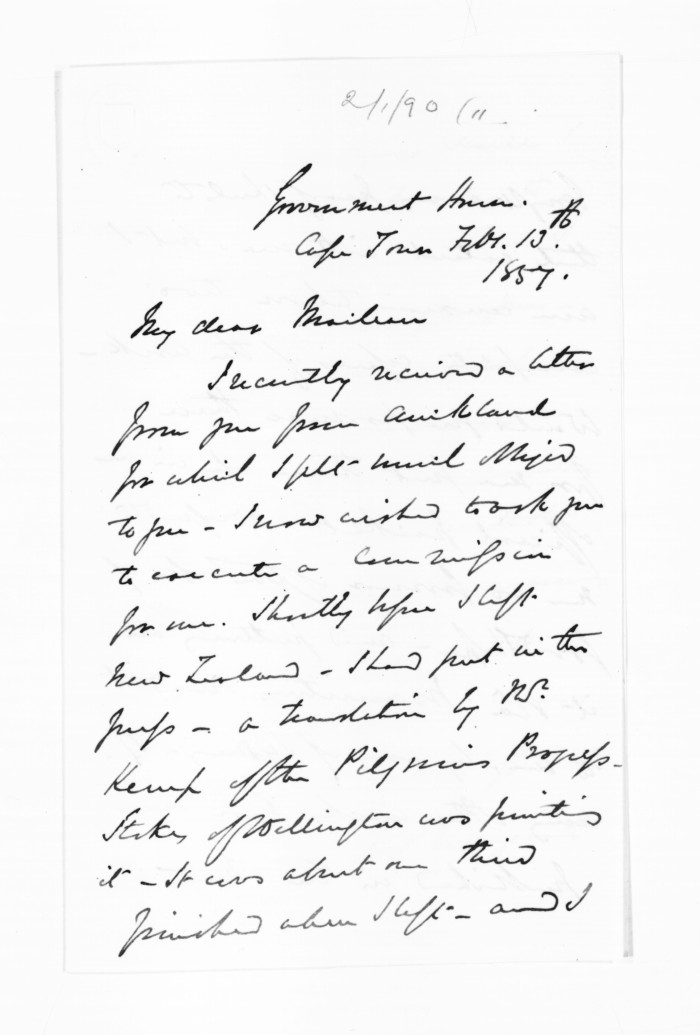 2/1/90 (11
Government House.
Cape Town Feby. 13th
1857.
My dear Maclean
I recently received a letter
from you from Auckland
for which I felt much obliged
to you - I now wished to ask you
to execute a commission
for me. Shortly before I left
New Zealand - I had put in the
press - a translation by Mr.
Kemp of the Pilgrims Progress -
Stokes of Wellington was printing
it - It was about one third
finished when I left - and I